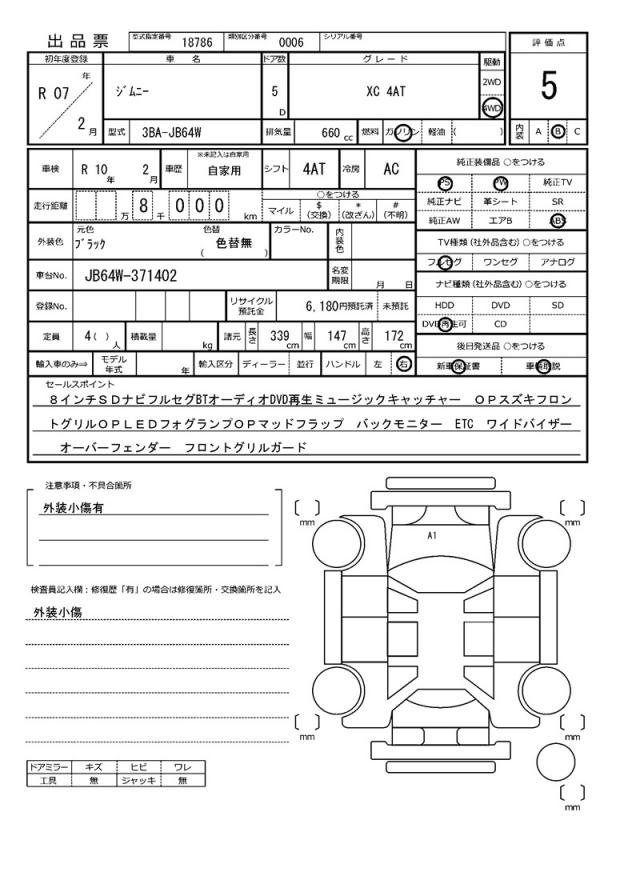 出品票 型式指定番号 18786 類別区分番号 0006 シリアル番号
評価点
5
内装 A B C
初年度登録 車名 ドア数 グレード 駆動
R 07 年 2 月 ｼﾞﾑﾆｰ 5 D XC 4AT 2WD 4WD
型式 3BA-JB64W 排気量 660 cc 燃料 ガソリン 軽油 ( )
※未記入は自家用
車検 R 10 年 2 月 車歴 自家用 シフト 4AT 冷房 AC
走行距離 万 8 千 0 0 0 km
○をつける
マイル $ (交換) * (改ざん) # (不明)
外装色 元色 ﾌﾞﾗｯｸ 色替 ( 色替無 ) カラーNo. 内装色
車台No. JB64W-371402 名変期限 月 日
登録No. リサイクル預託金 6,180円預託済 未預託
定員 4( ) 人 積載量 kg 諸元 長さ 339 cm 幅 147 cm 高さ 172 cm
輸入車のみ⇒ モデル年式 年 輸入区分 ディーラー 並行 ハンドル 左 右
純正装備品 ○をつける
PS PW 純正TV
純正ナビ 革シート SR
純正AW エアB ABS
TV種類 (社外品含む) ○をつける
フルセグ ワンセグ アナログ
ナビ種類 (社外品含む) ○をつける
HDD DVD SD
DVD再生可 CD
後日発送品 ○をつける
新車保証書 車輌取説
セールスポイント
８インチＳＤナビフルセグBTオーディオDVD再生ミュージックキャッチャー　ＯＰスズキフロン
トグリルＯＰＬＥＤフォグランプＯＰマッドフラップ　バックモニター　ETC　ワイドバイザー
オーバーフェンダー　フロントグリルガード
注意事項・不具合箇所
外装小傷有
検査員記入欄：修復歴「有」の場合は修復箇所・交換箇所を記入
外装小傷
ドアミラー キズ ヒビ ワレ
工具 無 ジャッキ 無
mm mm
A1
mm mm
mm